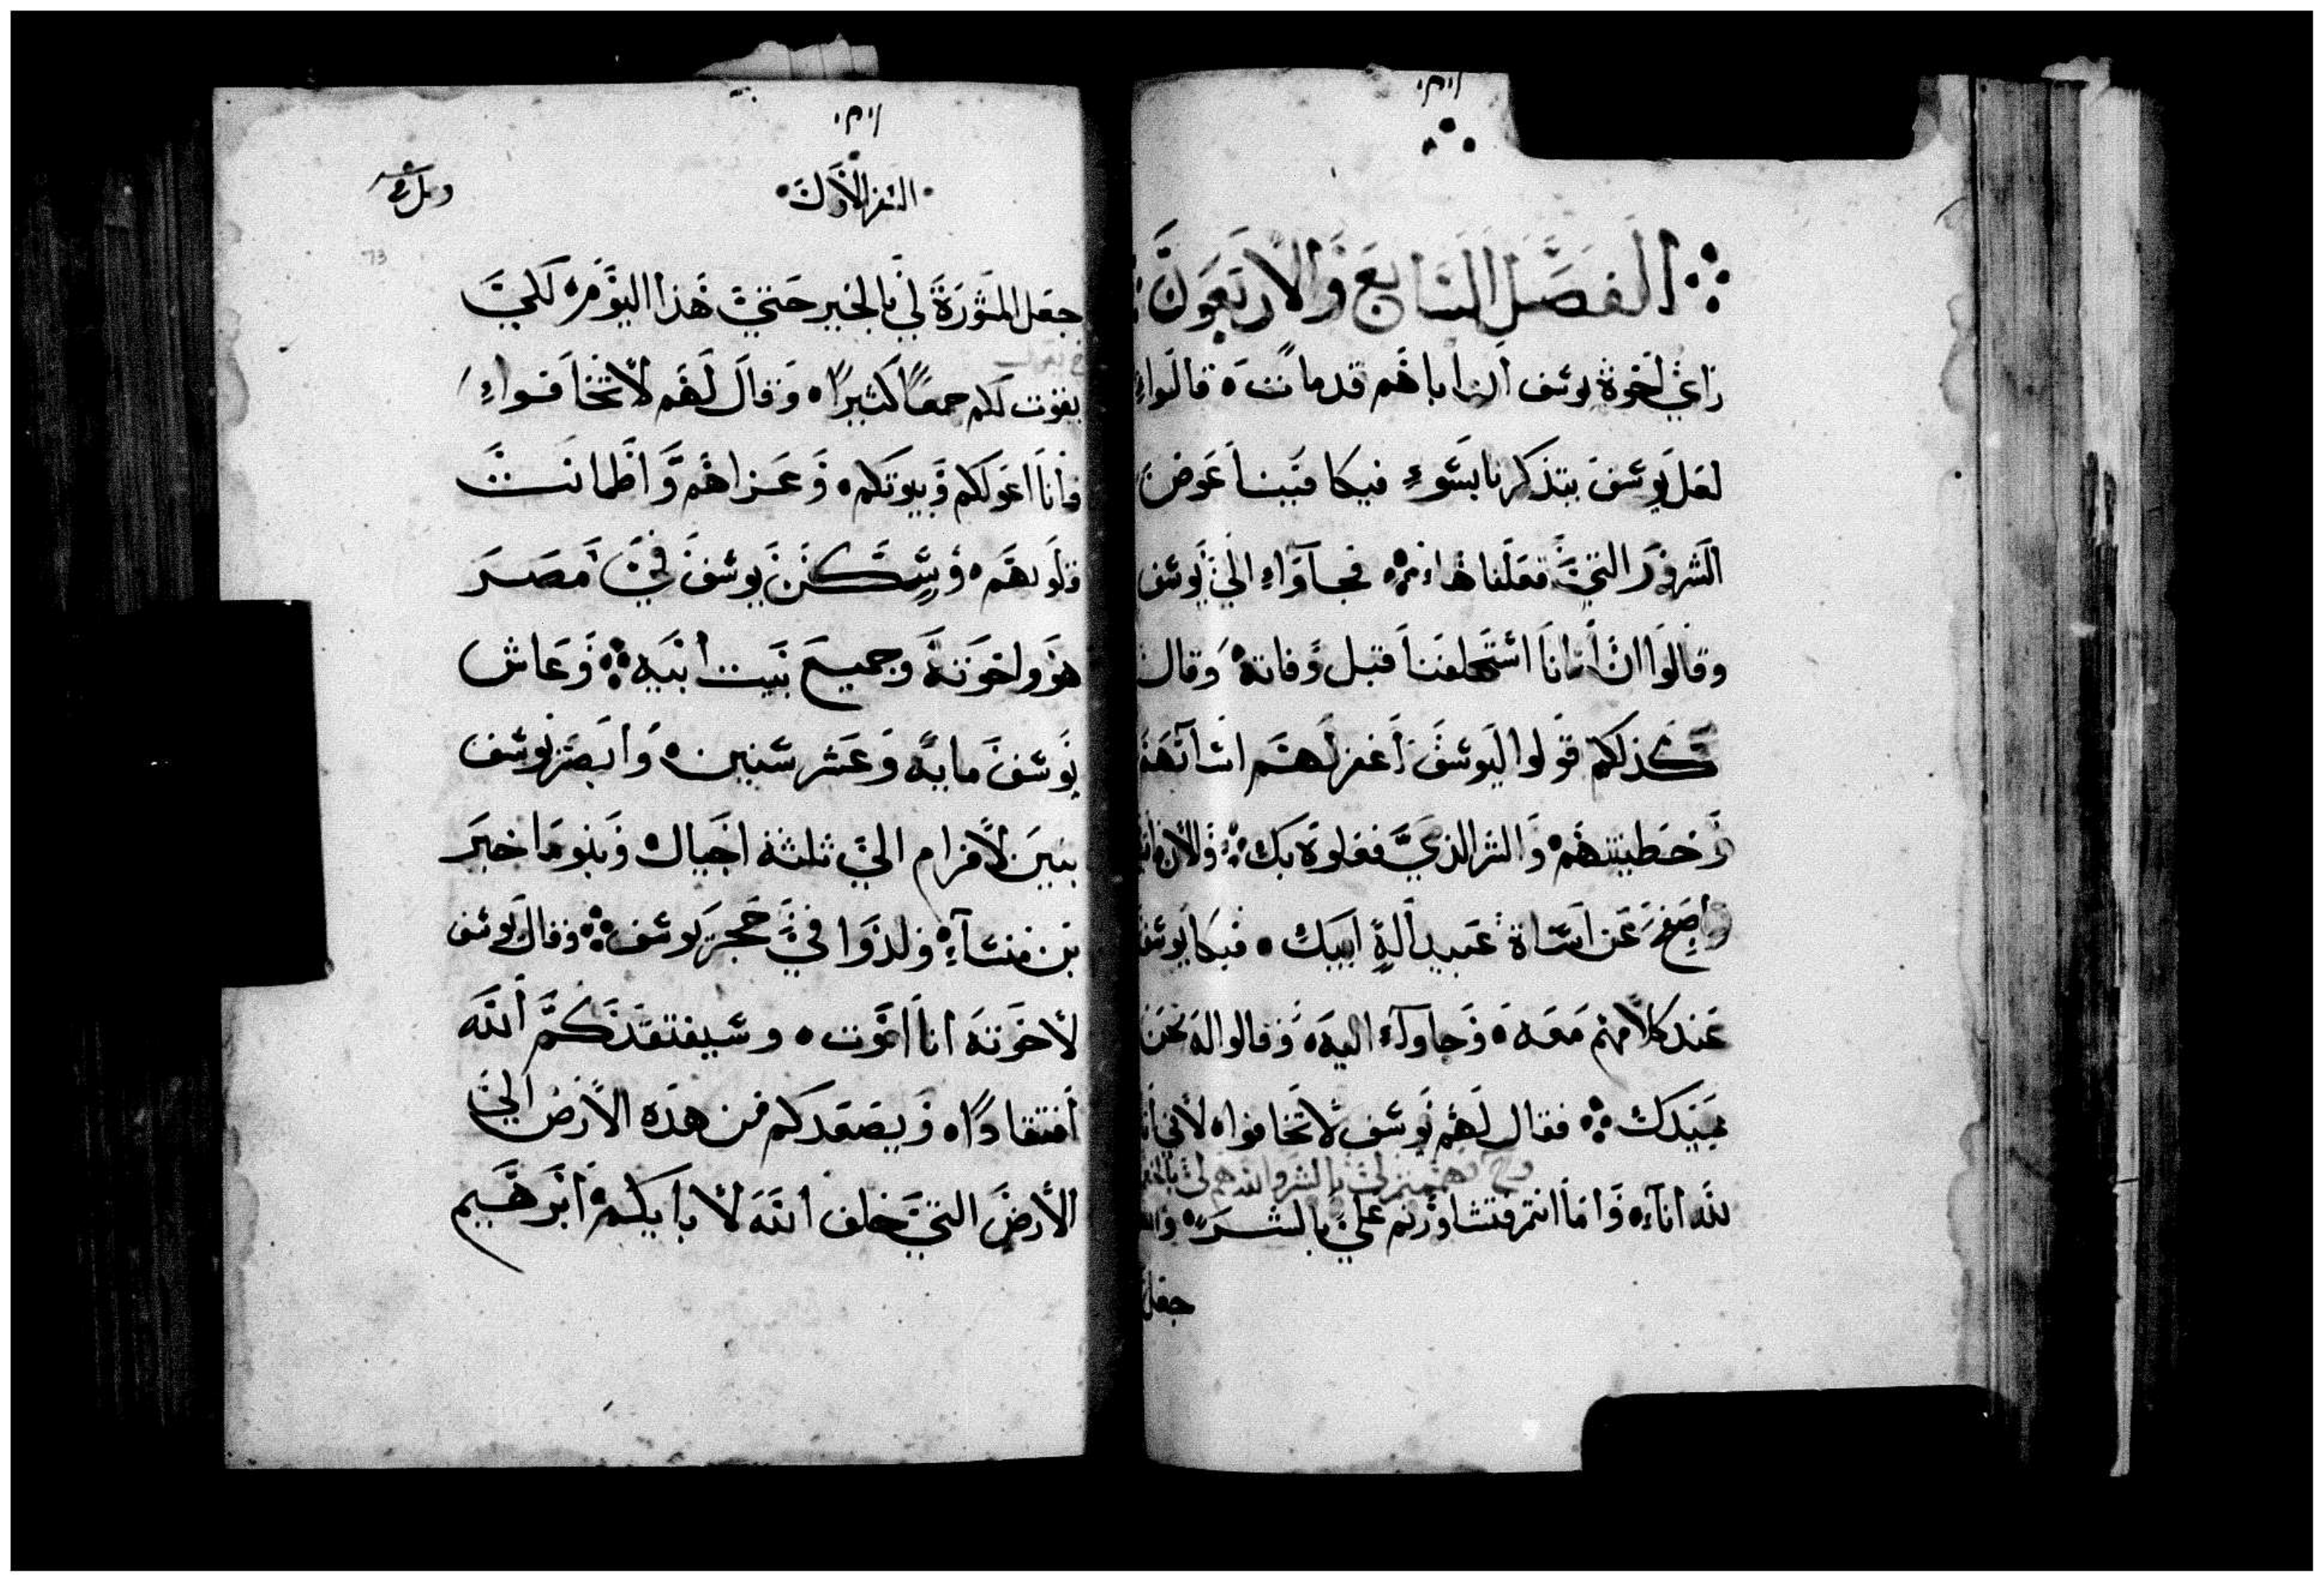 الفصل السابع والاربعون
راي اخوة يوسف ان اباهم قد مات قالوا
لعل يوسف يتذكرنا بسوء فيكافينا عوض
الشرور التي فعلناها فجآواء الي يوسف
وقالوا ان ابانا استحلفنا قبل وفاته وقال
كذلكم قولوا ليوسف اغفر لهم اساتهم
وخطيتهم والشر الذي فعلوه بك والان
واصفح عن اساة عبيد اله ابيك فبكا يوسف
عند كلامهم معه وجاوآء اليه وقالوا له نحن
عبيدك فقال لهم يوسف لا تخافوا لاني
لله اناء واما انتم فتشاورتم علي بالشر
جعل
السفر الاول
73
جعل المشورة لي بالخير حتي هذا اليوم لكي
يقوت لكم جمعا كثيرا وقال لهم لا تخافواء
فانا اعولكم وبيوتكم وعزاهم واطمانت
قلوبهم وسكن يوسف في مصر
هو واخوته وجميع بيت ابيه وعاش
يوسف مايه وعشر سنين وابصر يوسف
بنين لافرام الي ثلثة اجيال وبنو ماخير
بن منسآء ولدوا في حجر يوسف وقال يوسف
لاخوته انا اموت وسيفتقدكم الله
افتقادا ويصعدكم من هذه الارض الي
الارض التي حلف الله لابايكم ابرهيم